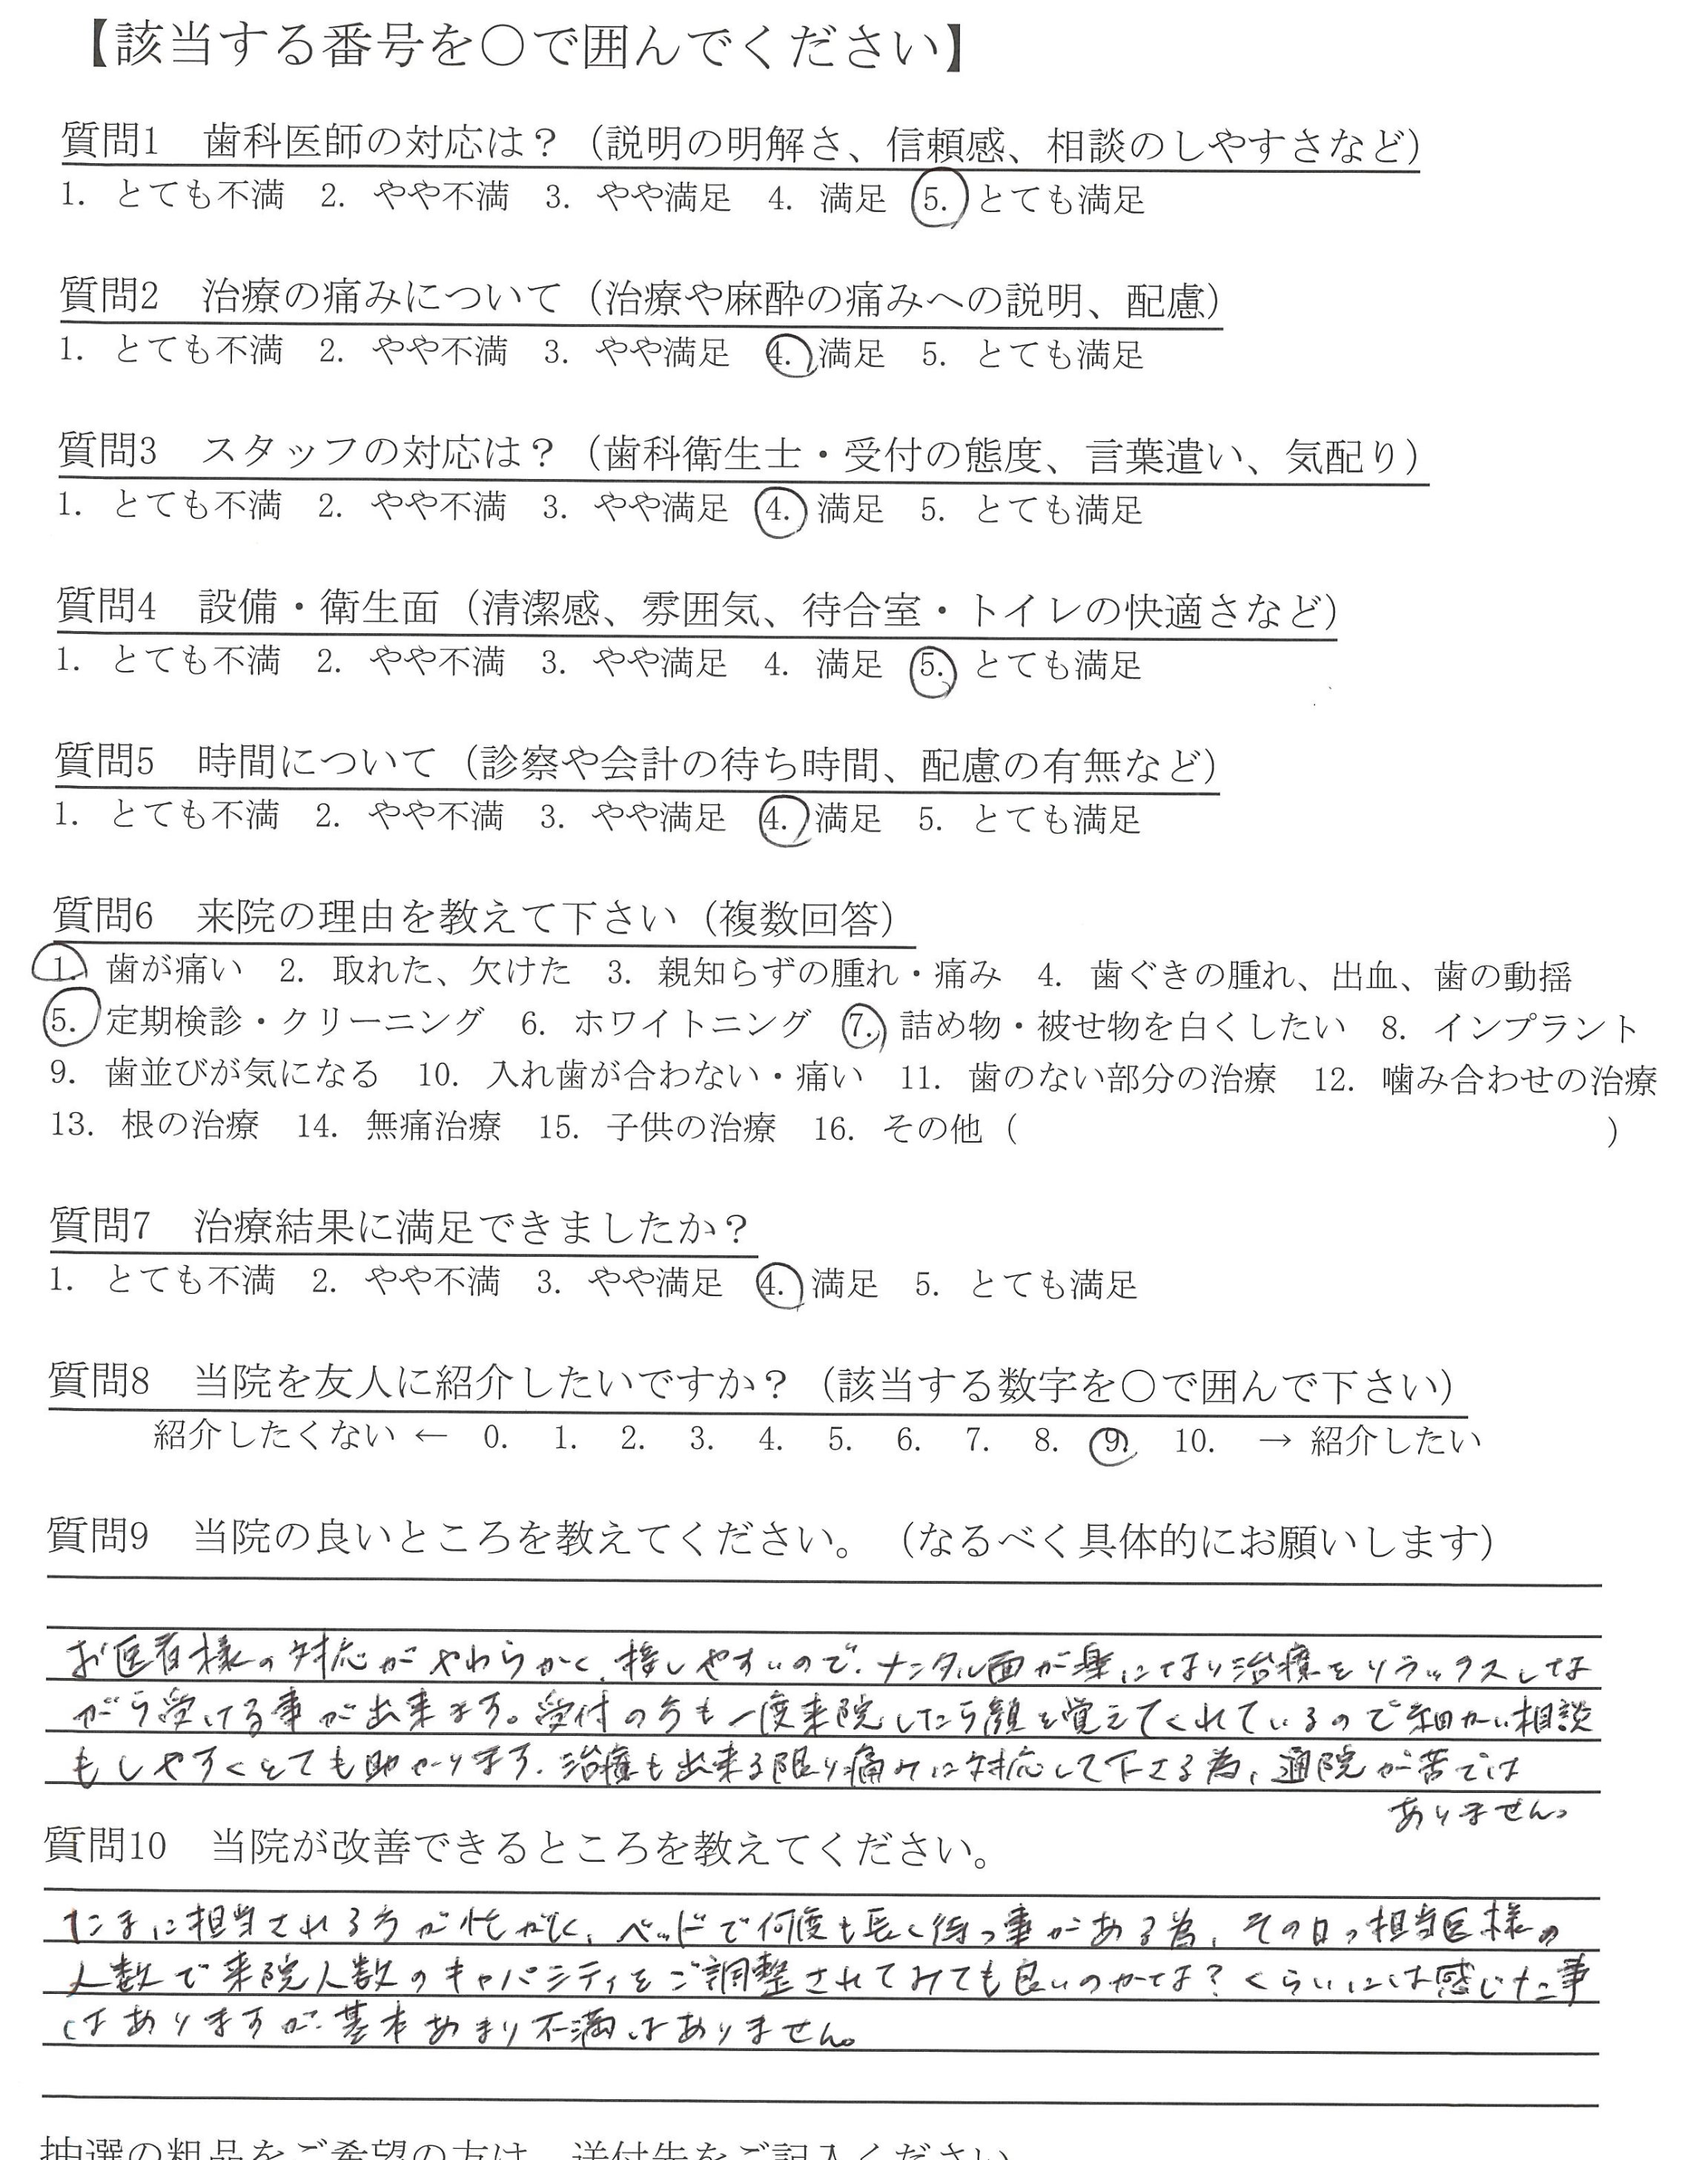 【該当する番号を○で囲んでください】
質問1　歯科医師の対応は？（説明の明解さ、信頼感、相談のしやすさなど）
1. とても不満　2. やや不満　3. やや満足　4. 満足　5. とても満足
質問2　治療の痛みについて（治療や麻酔の痛みへの説明、配慮）
1. とても不満　2. やや不満　3. やや満足　4. 満足　5. とても満足
質問3　スタッフの対応は？（歯科衛生士・受付の態度、言葉遣い、気配り）
1. とても不満　2. やや不満　3. やや満足　4. 満足　5. とても満足
質問4　設備・衛生面（清潔感、雰囲気、待合室・トイレの快適さなど）
1. とても不満　2. やや不満　3. やや満足　4. 満足　5. とても満足
質問5　時間について（診察や会計の待ち時間、配慮の有無など）
1. とても不満　2. やや不満　3. やや満足　4. 満足　5. とても満足
質問6　来院の理由を教えて下さい（複数回答）
1. 歯が痛い　2. 取れた、欠けた　3. 親知らずの腫れ・痛み　4. 歯ぐきの腫れ、出血、歯の動揺
5. 定期検診・クリーニング　6. ホワイトニング　7. 詰め物・被せ物を白くしたい　8. インプラント
9. 歯並びが気になる　10. 入れ歯が合わない・痛い　11. 歯のない部分の治療　12. 噛み合わせの治療
13. 根の治療　14. 無痛治療　15. 子供の治療　16. その他（　　　　　）
質問7　治療結果に満足できましたか？
1. とても不満　2. やや不満　3. やや満足　4. 満足　5. とても満足
質問8　当院を友人に紹介したいですか？（該当する数字を○で囲んで下さい）
紹介したくない ← 0. 1. 2. 3. 4. 5. 6. 7. 8. 9. 10. → 紹介したい
質問9　当院の良いところを教えてください。（なるべく具体的にお願いします）
お医者様の対応がやわらかく、接しやすいので、メンタル面が楽になり治療をリラックスしな
がら受ける事が出来ます。受付の方も一度来院したら顔を覚えてくれているので細かい相談
もしやすくとても助かります。治療も出来る限り痛みに対応して下さる為、通院が苦では
ありません。
質問10　当院が改善できるところを教えてください。
たまに担当される方が忙がしく、ベッドで何度も長く待つ事がある為、その日の担当医様の
人数で来院人数のキャパシティをご調整されてみても良いのかな？くらいには感じた事
はありますが、基本あまり不満はありません。
抽選の粗品をご希望の方は、送付先をご記入ください